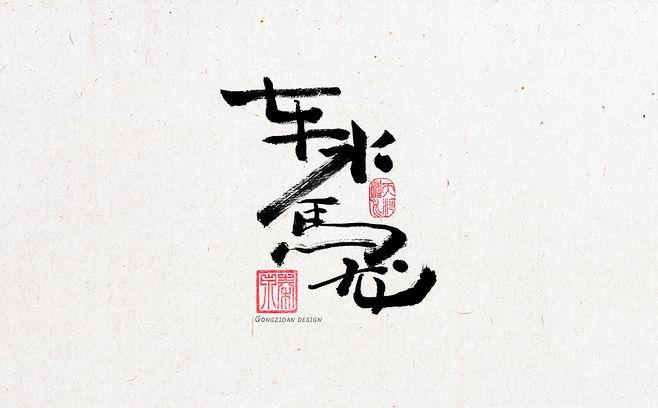 车水
馬龙
GONGZIDAN DESIGN